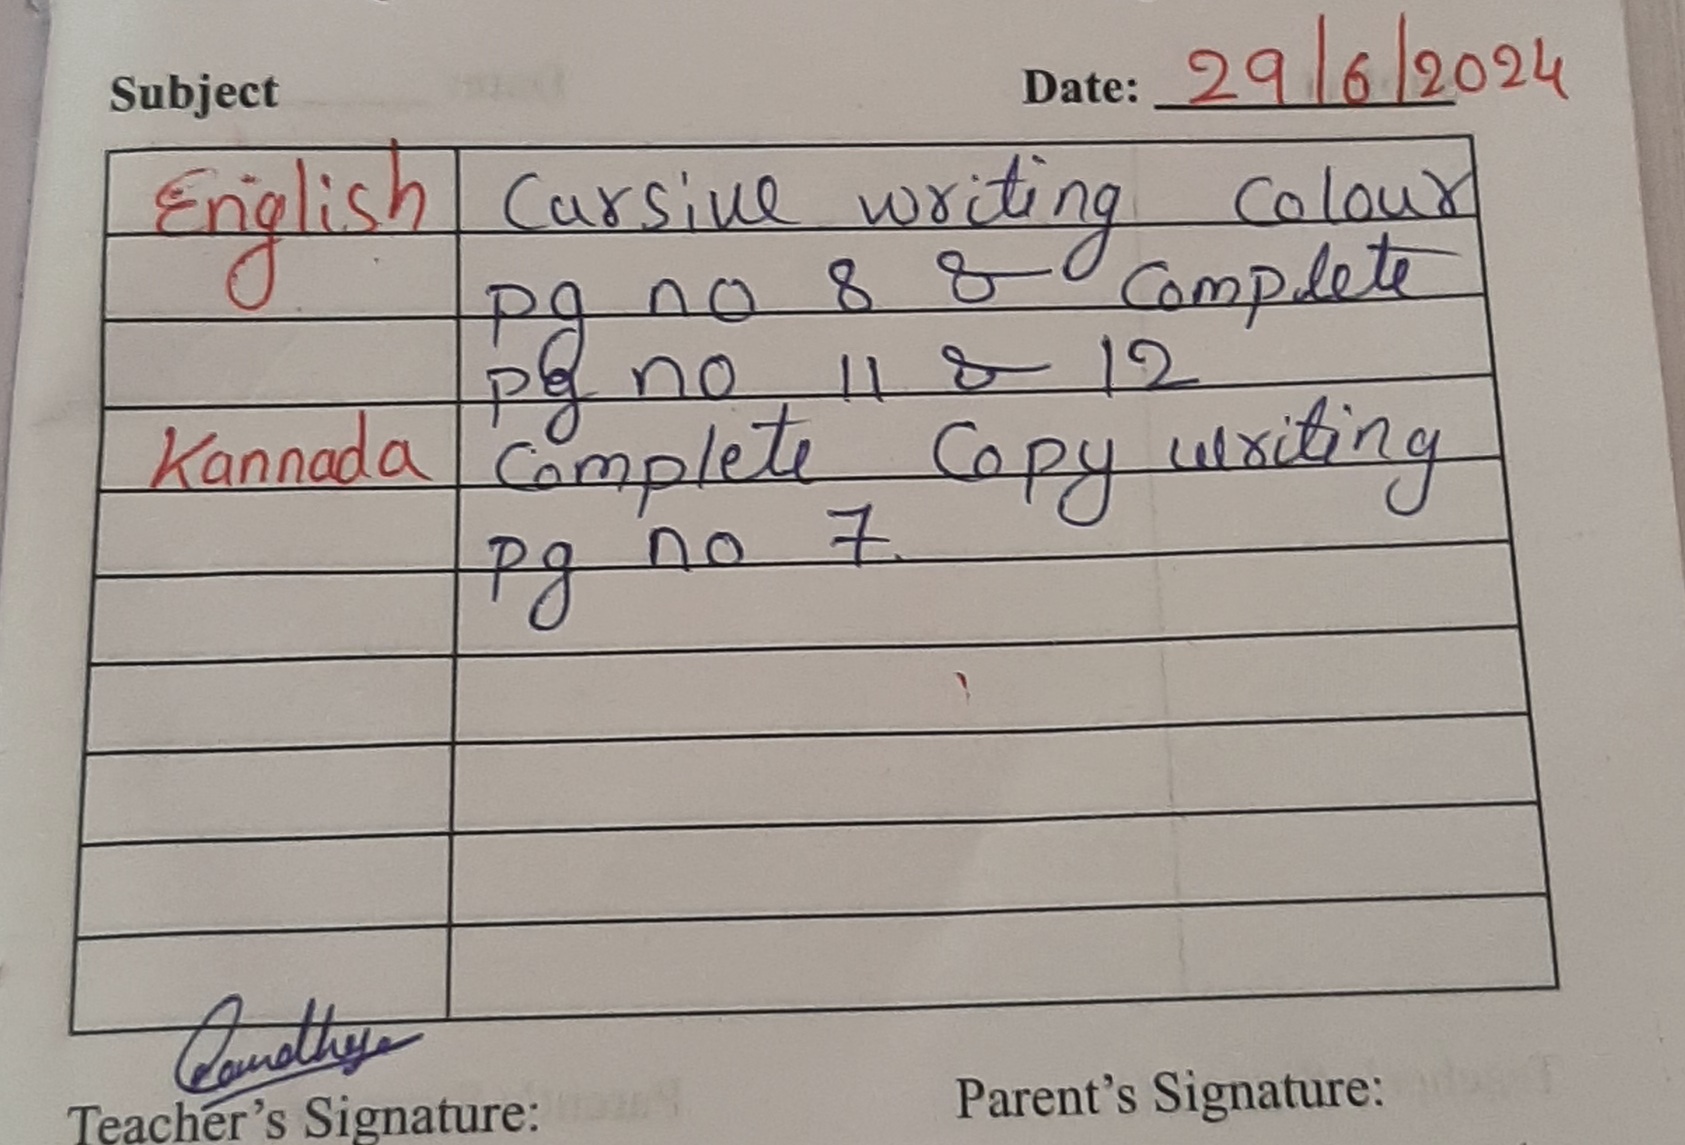 Subject Date: 29/6/2024
English Cursive writing Colour
pg no 8 & Complete
pg no 11 & 12
Kannada Complete Copy writing
pg no 7.
Teacher's Signature: Parent's Signature: